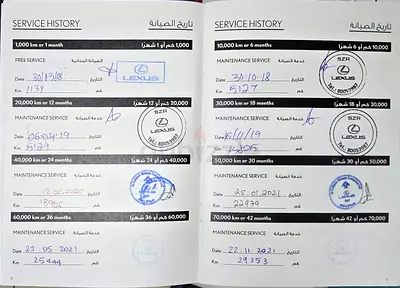 SERVICE HISTORY تاريخ الصيانة
1,000 km or 1 month 1,000 كم أو 1 شهرًا
FREE SERVICE الصيانة المجانية
Date 30/3/18 التاريخ
Km. 1139 كم
LEXUS
20,000 km or 12 months 20,000 كم أو 12 شهرًا
MAINTENANCE SERVICE خدمة الصيانة
Date 06-04-19 التاريخ
Km. 5129 كم
SZR
LEXUS
40,000 km or 24 months 40,000 كم أو 24 شهرًا
MAINTENANCE SERVICE خدمة الصيانة
Date 12.02.2020 التاريخ
Km. 18905 كم
60,000 km or 36 months 60,000 كم أو 36 شهرًا
MAINTENANCE SERVICE خدمة الصيانة
Date 27-05-2021 التاريخ
Km. 25444 كم
SERVICE HISTORY تاريخ الصيانة
10,000 km or 6 months 10,000 كم أو 6 شهرًا
MAINTENANCE SERVICE خدمة الصيانة
Date 30-10-18 التاريخ
Km. 5127 كم
SZR
LEXUS
30,000 km or 18 months 30,000 كم أو 18 شهرًا
MAINTENANCE SERVICE خدمة الصيانة
Date 16/11/19 التاريخ
Km. كم
SZR
LEXUS
50,000 km or 30 months 50,000 كم أو 30 شهرًا
MAINTENANCE SERVICE خدمة الصيانة
Date 25.01.2021 التاريخ
Km. 22979 كم
70,000 km or 42 months 70,000 كم أو 42 شهرًا
MAINTENANCE SERVICE خدمة الصيانة
Date 22-11-2021 التاريخ
Km. 29253 كم